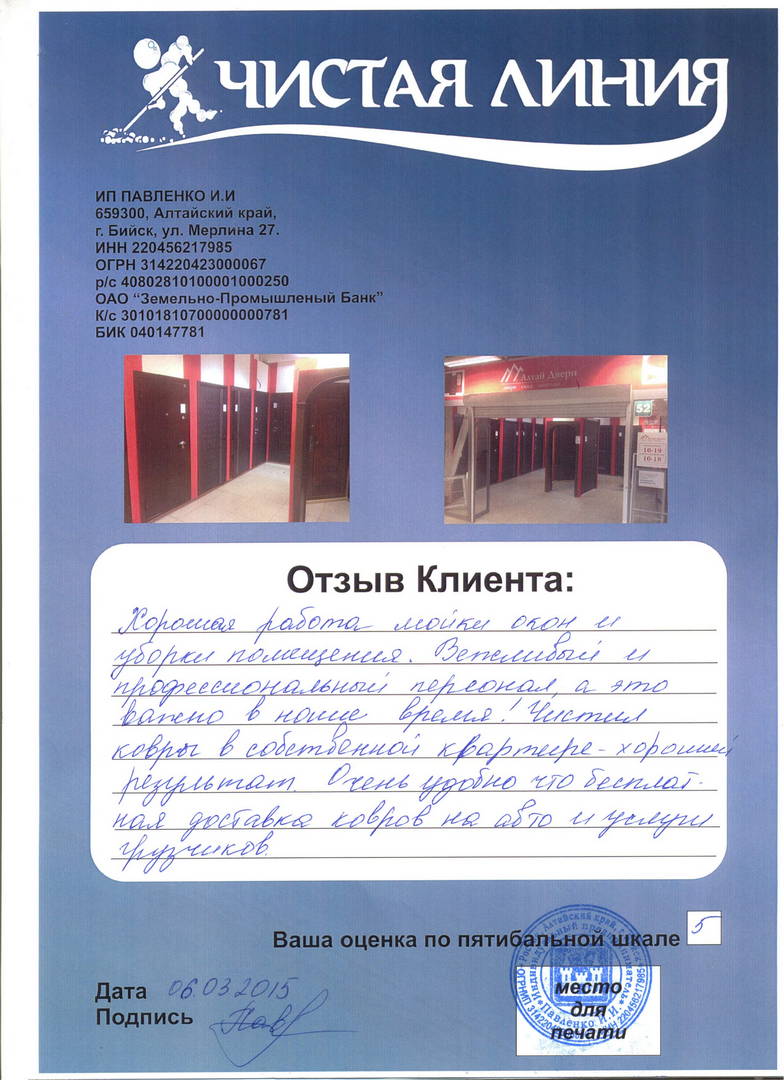 ЧИСТАЯ ЛИНИЯ
ИП ПАВЛЕНКО И.И
659300, Алтайский край,
г. Бийск, ул. Мерлина 27.
ИНН 220456217985
ОГРН 314220423000067
р/с 40802810100001000250
ОАО “Земельно-Промышленый Банк”
К/с 30101810700000000781
БИК 040147781
Алтай Двери
52
16-19
16-18
Отзыв Клиента:
Хорошая работа мойки окон и
уборки помещения. Вежливый и
профессиональный персонал, а это
важно в наше время! Чистил
ковры в собственной квартире - хороший
результат. Очень удобно что бесплат-
ная доставка ковров на авто и услуги
грузчиков.
Ваша оценка по пятибальной шкале 5
Дата 06.03 2015
Подпись
место
для
печати
Алтайский край, г.
Индивидуальный предприниматель
Павленко И.И.
ИНН 220456217985